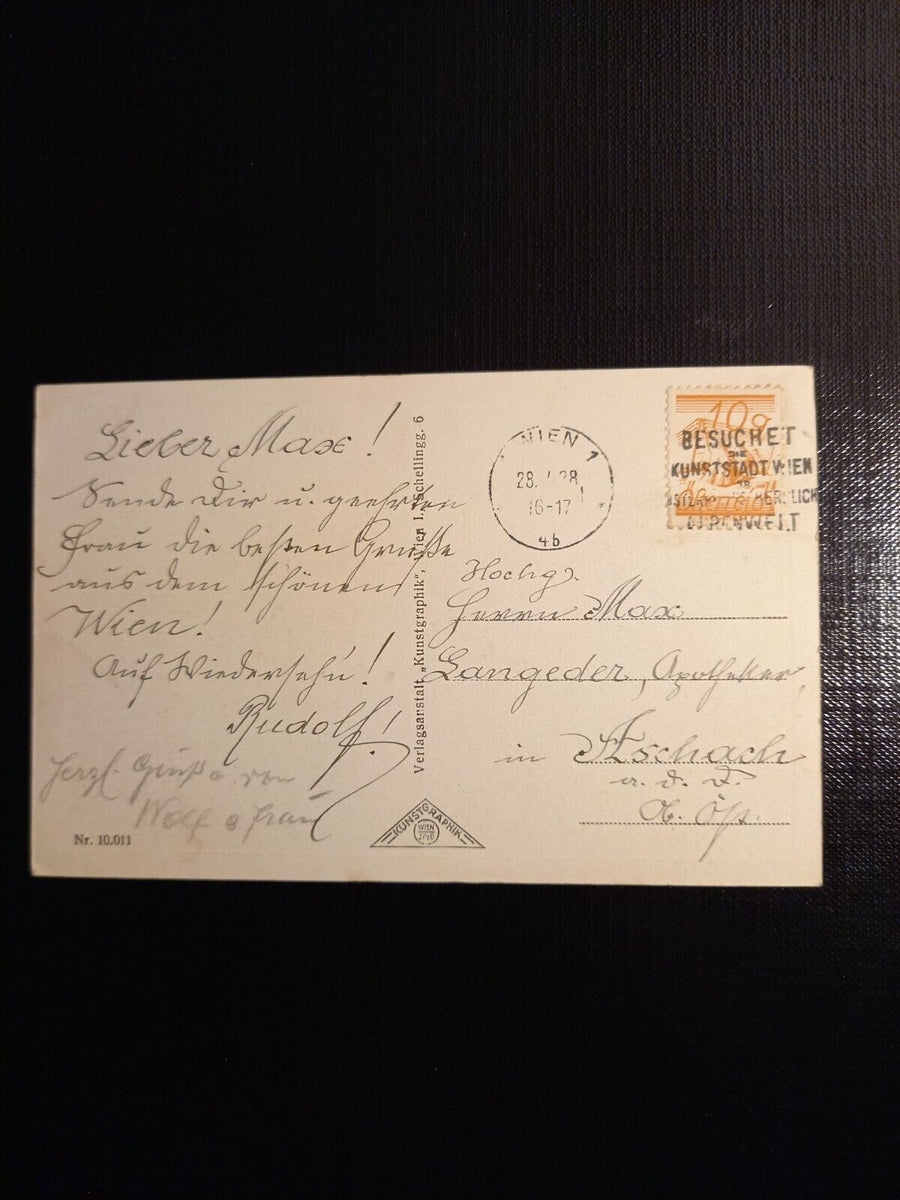 Lieber Max!
Sende Dir u. geehrten
Frau die besten Grüße
aus dem schönen
Wien!
Auf Wiedersehn!
Rudolf!
Herzl. Grüße von
Wolf & Frau
Nr. 10.011
Verlagsanstalt „Kunstgraphik“, Wien I., Schellingg. 6
KUNSTGRAPHIK
WIEN
WIEN 1
28. 28
16-17
4b
10g
BESUCHET
DIE
KUNSTSTADT WIEN
HERRLICH
ALPENWELT
Hochg.
Herrn Max
Langeder, Apotheker,
in Aschach
a. d. D.
Ob. Öst.